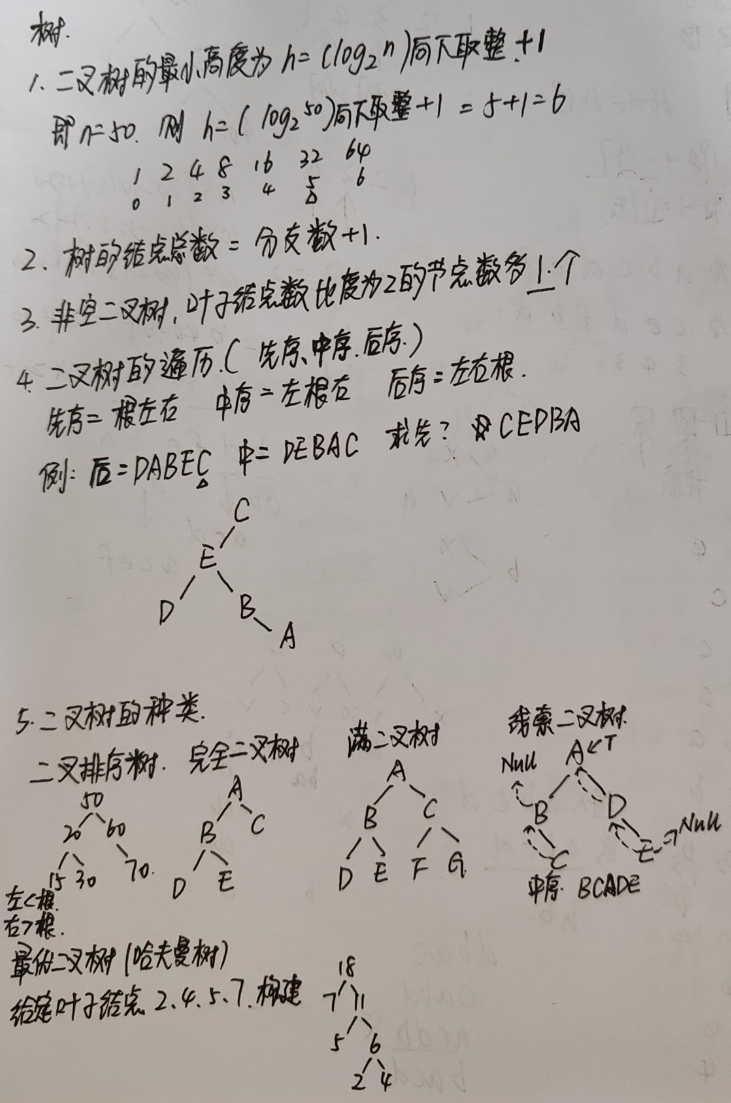 树.
1. 二叉树的最小高度为 h=(log₂n)向下取整+1
即n=50. 则 h=(log₂50)向下取整+1=5+1=6
1 2 4 8 16 32 64
0 1 2 3 4 5 6
2. 树的结点总数=分支数+1.
3. 非空二叉树,叶子结点数比度为2的节点数多1个
4. 二叉树的遍历.(先序、中序.后序.)
先序=根左右 中序=左根右 后序=左右根.
例:后=DABEC 中=DEBAC 求先? CEDBA
C
E
D B
A
5. 二叉树的种类.
二叉排序树. 完全二叉树 满二叉树 线索二叉树.
50
20 60
15 30 70.
左<根.
右>根.
A
B C
D E
A
B C
D E F G
A←T
Null B D
C E Null
中序. BCADE
最优二叉树(哈夫曼树)
给定叶子结点 2、4、5、7.构建
18
7 11
5 6
2 4